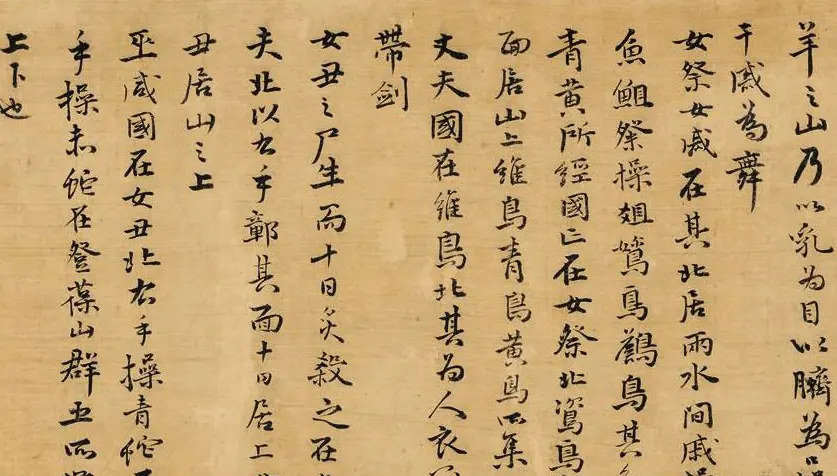 羊之山乃以乳為目以臍為口
干戚為舞
女祭女戚在其北居兩水間戚
魚祭操俎鴜鳥鳥其色
青黃所經國亡在女祭北鴜鳥
面居山上維鳥青鳥黃鳥所集
丈夫國在維鳥北其為人衣
帶劍
女丑之尸生而十日炙殺之在
夫北以右手鄣其面十日居上
丑居山之上
巫咸國在女丑北右手操青蛇
手操赤蛇在登葆山群巫所
上下也